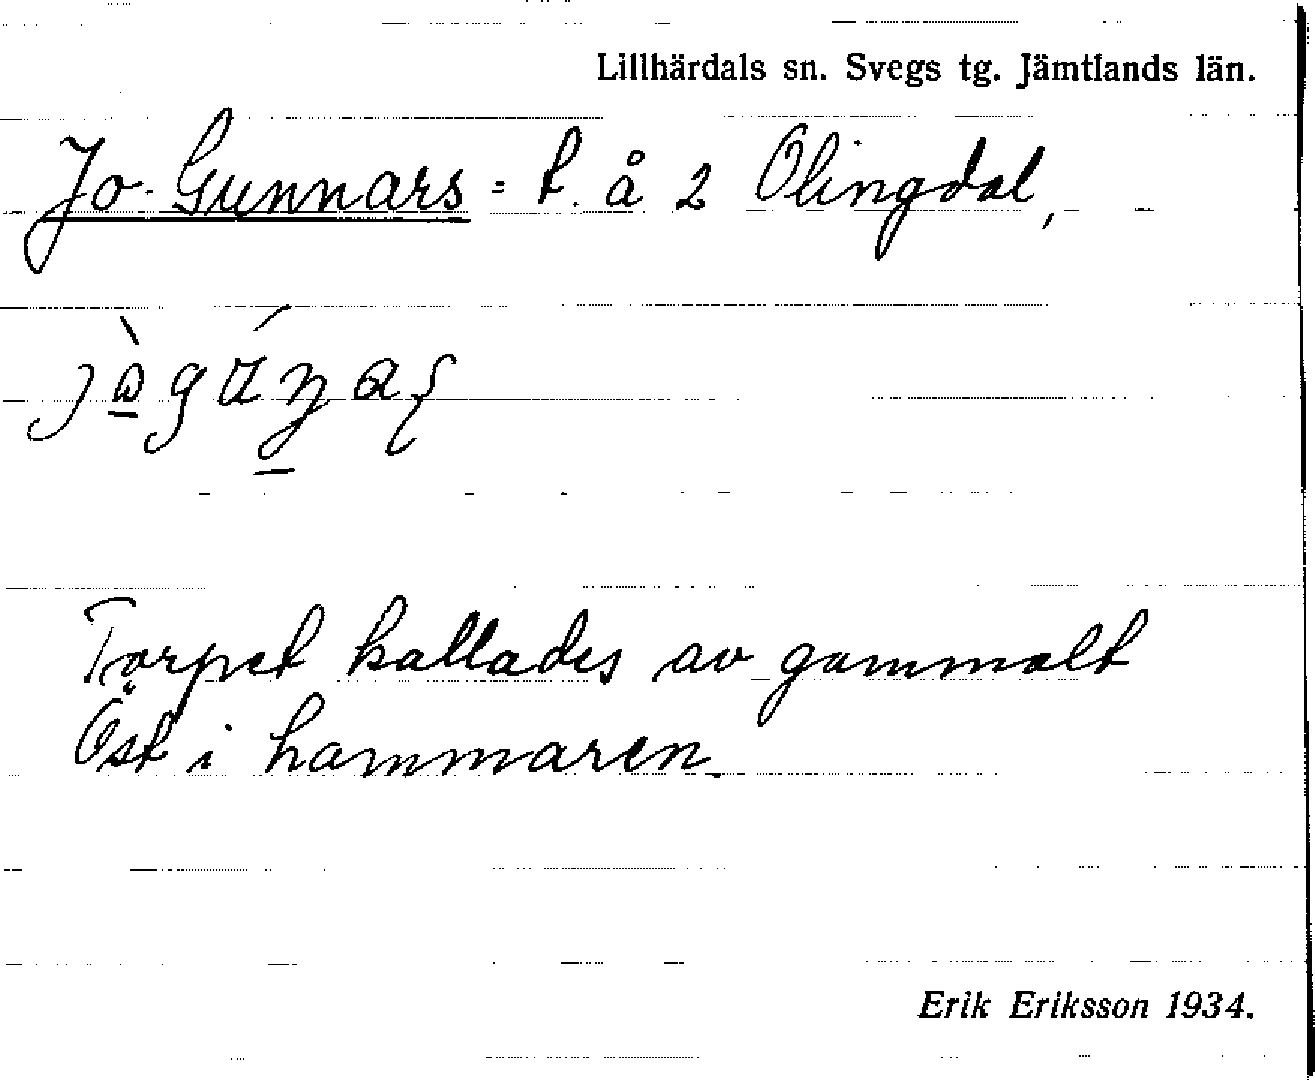 Lillhärdals sn. Svegs tg. Jämtlands län.
Jo-Gunnars = t. å 2 Olingdal,
Torpet kallades av gammalt
Öst i hammaren
Erik Eriksson 1934.